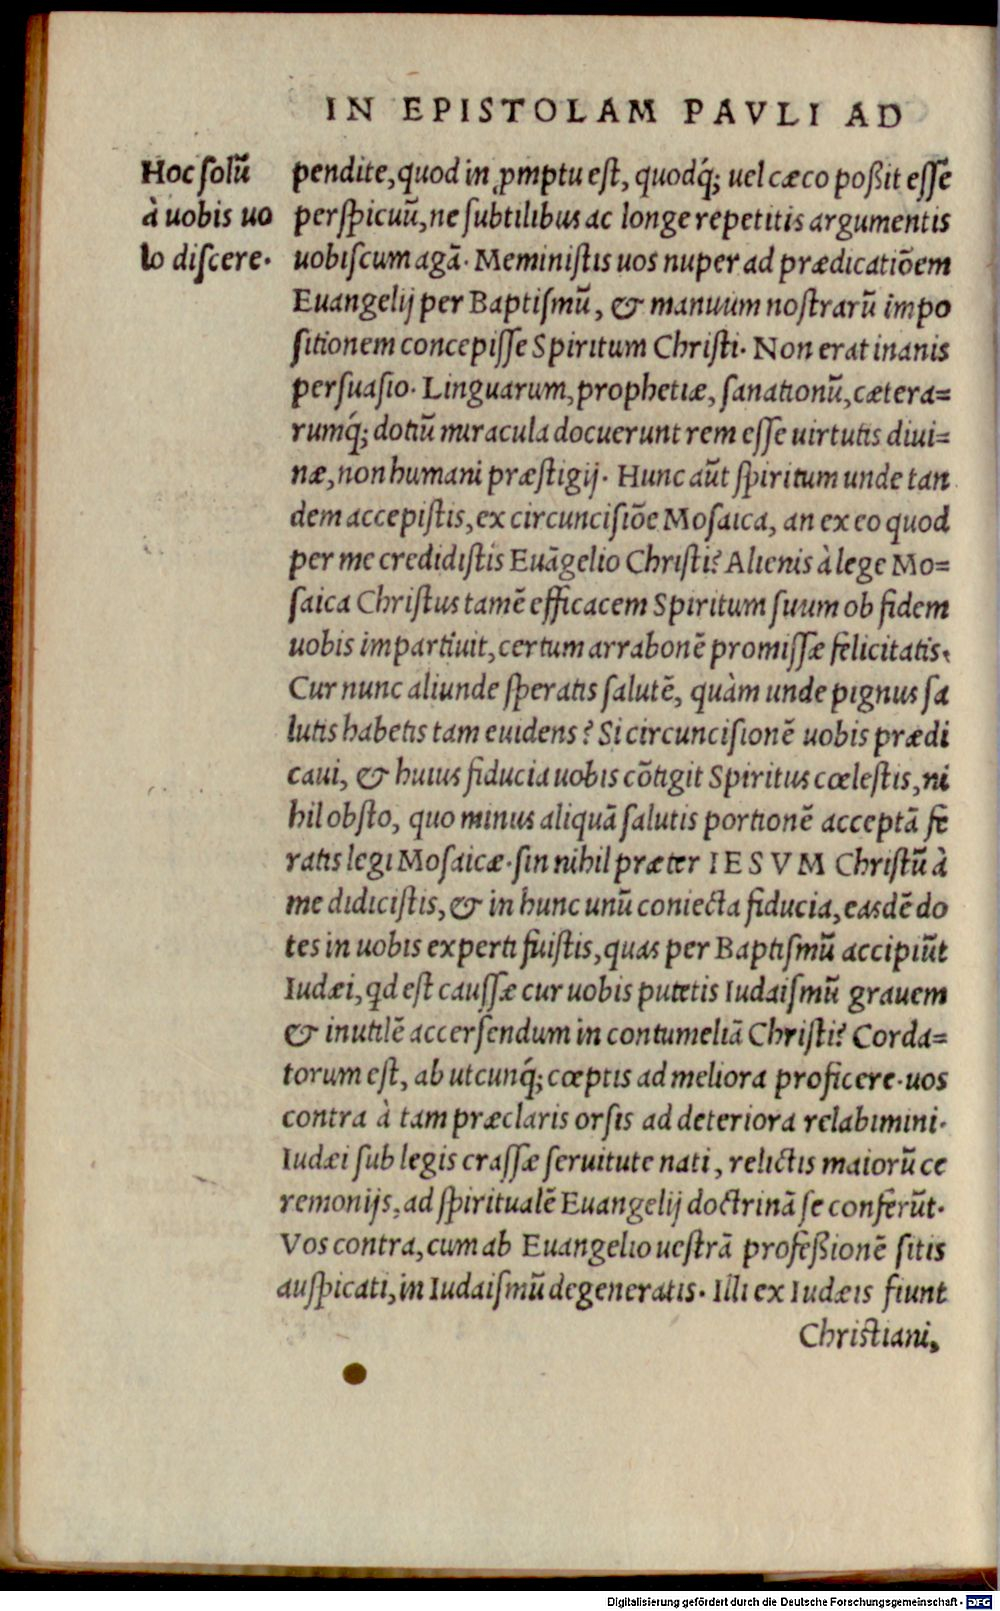 IN EPISTOLAM PAVLI AD
Hoc ſolũ
à uobis uo
lo diſcere.
pendite, quod in ꝓmptu est, quodq́; uel cæco poßit eſſe
perſpicuũ, ne ſubtilibus ac longe repetitis argumentis
uobiſcum agã. Meministis uos nuper ad prædicatiõem
Euangelij per Baptiſmũ, & manuum nostrarũ impo
ſitionem concepiſſe Spiritum Christi. Non erat inanis
perſuaſio. Linguarum, prophetiæ, ſanationũ, cætera=
rumq́; dotiũ miracula docuerunt rem eſſe uirtutis diui=
næ, non humani præstigij. Hunc aũt ſpiritum unde tan
dem accepistis, ex circunciſiõe Moſaica, an ex eo quod
per me credidistis Euãgelio Christi? Alienis à lege Mo=
ſaica Christus tamẽ efficacem Spiritum ſuum ob fidem
uobis impartiuit, certum arrabonẽ promiſſæ felicitatis.
Cur nunc aliunde ſperatis ſalutẽ, quàm unde pignus ſa
lutis habetis tam euidens? Si circunciſionẽ uobis prædi
caui, & huius fiducia uobis cõtigit Spiritus cœlestis, ni
hil obsto, quo minus aliquã ſalutis portionẽ acceptã fe
ratis legi Moſaicæ. ſin nihil præter IESVM Christũ à
me didicistis, & in hunc unũ coniecta fiducia, eaſdẽ do
tes in uobis experti fuistis, quas per Baptiſmũ accipiũt
Iudæi, qd est cauſſæ cur uobis putetis Iudaiſmũ grauem
& inutilẽ accerſendum in contumeliã Christi? Corda=
torum est, ab utcunq́; cœptis ad meliora proficere. uos
contra à tam præclaris orſis ad deteriora relabimini.
Iudæi ſub legis craſſæ ſeruitute nati, relictis maiorũ ce
remonijs, ad ſpiritualẽ Euangelij doctrinã ſe conferũt.
Vos contra, cum ab Euangelio uestrã profeßionẽ ſitis
auſpicati, in Iudaiſmũ degeneratis. Illi ex Iudæis fiunt
Christiani,
Digitalisierung gefördert durch die Deutsche Forschungsgemeinschaft - DFG